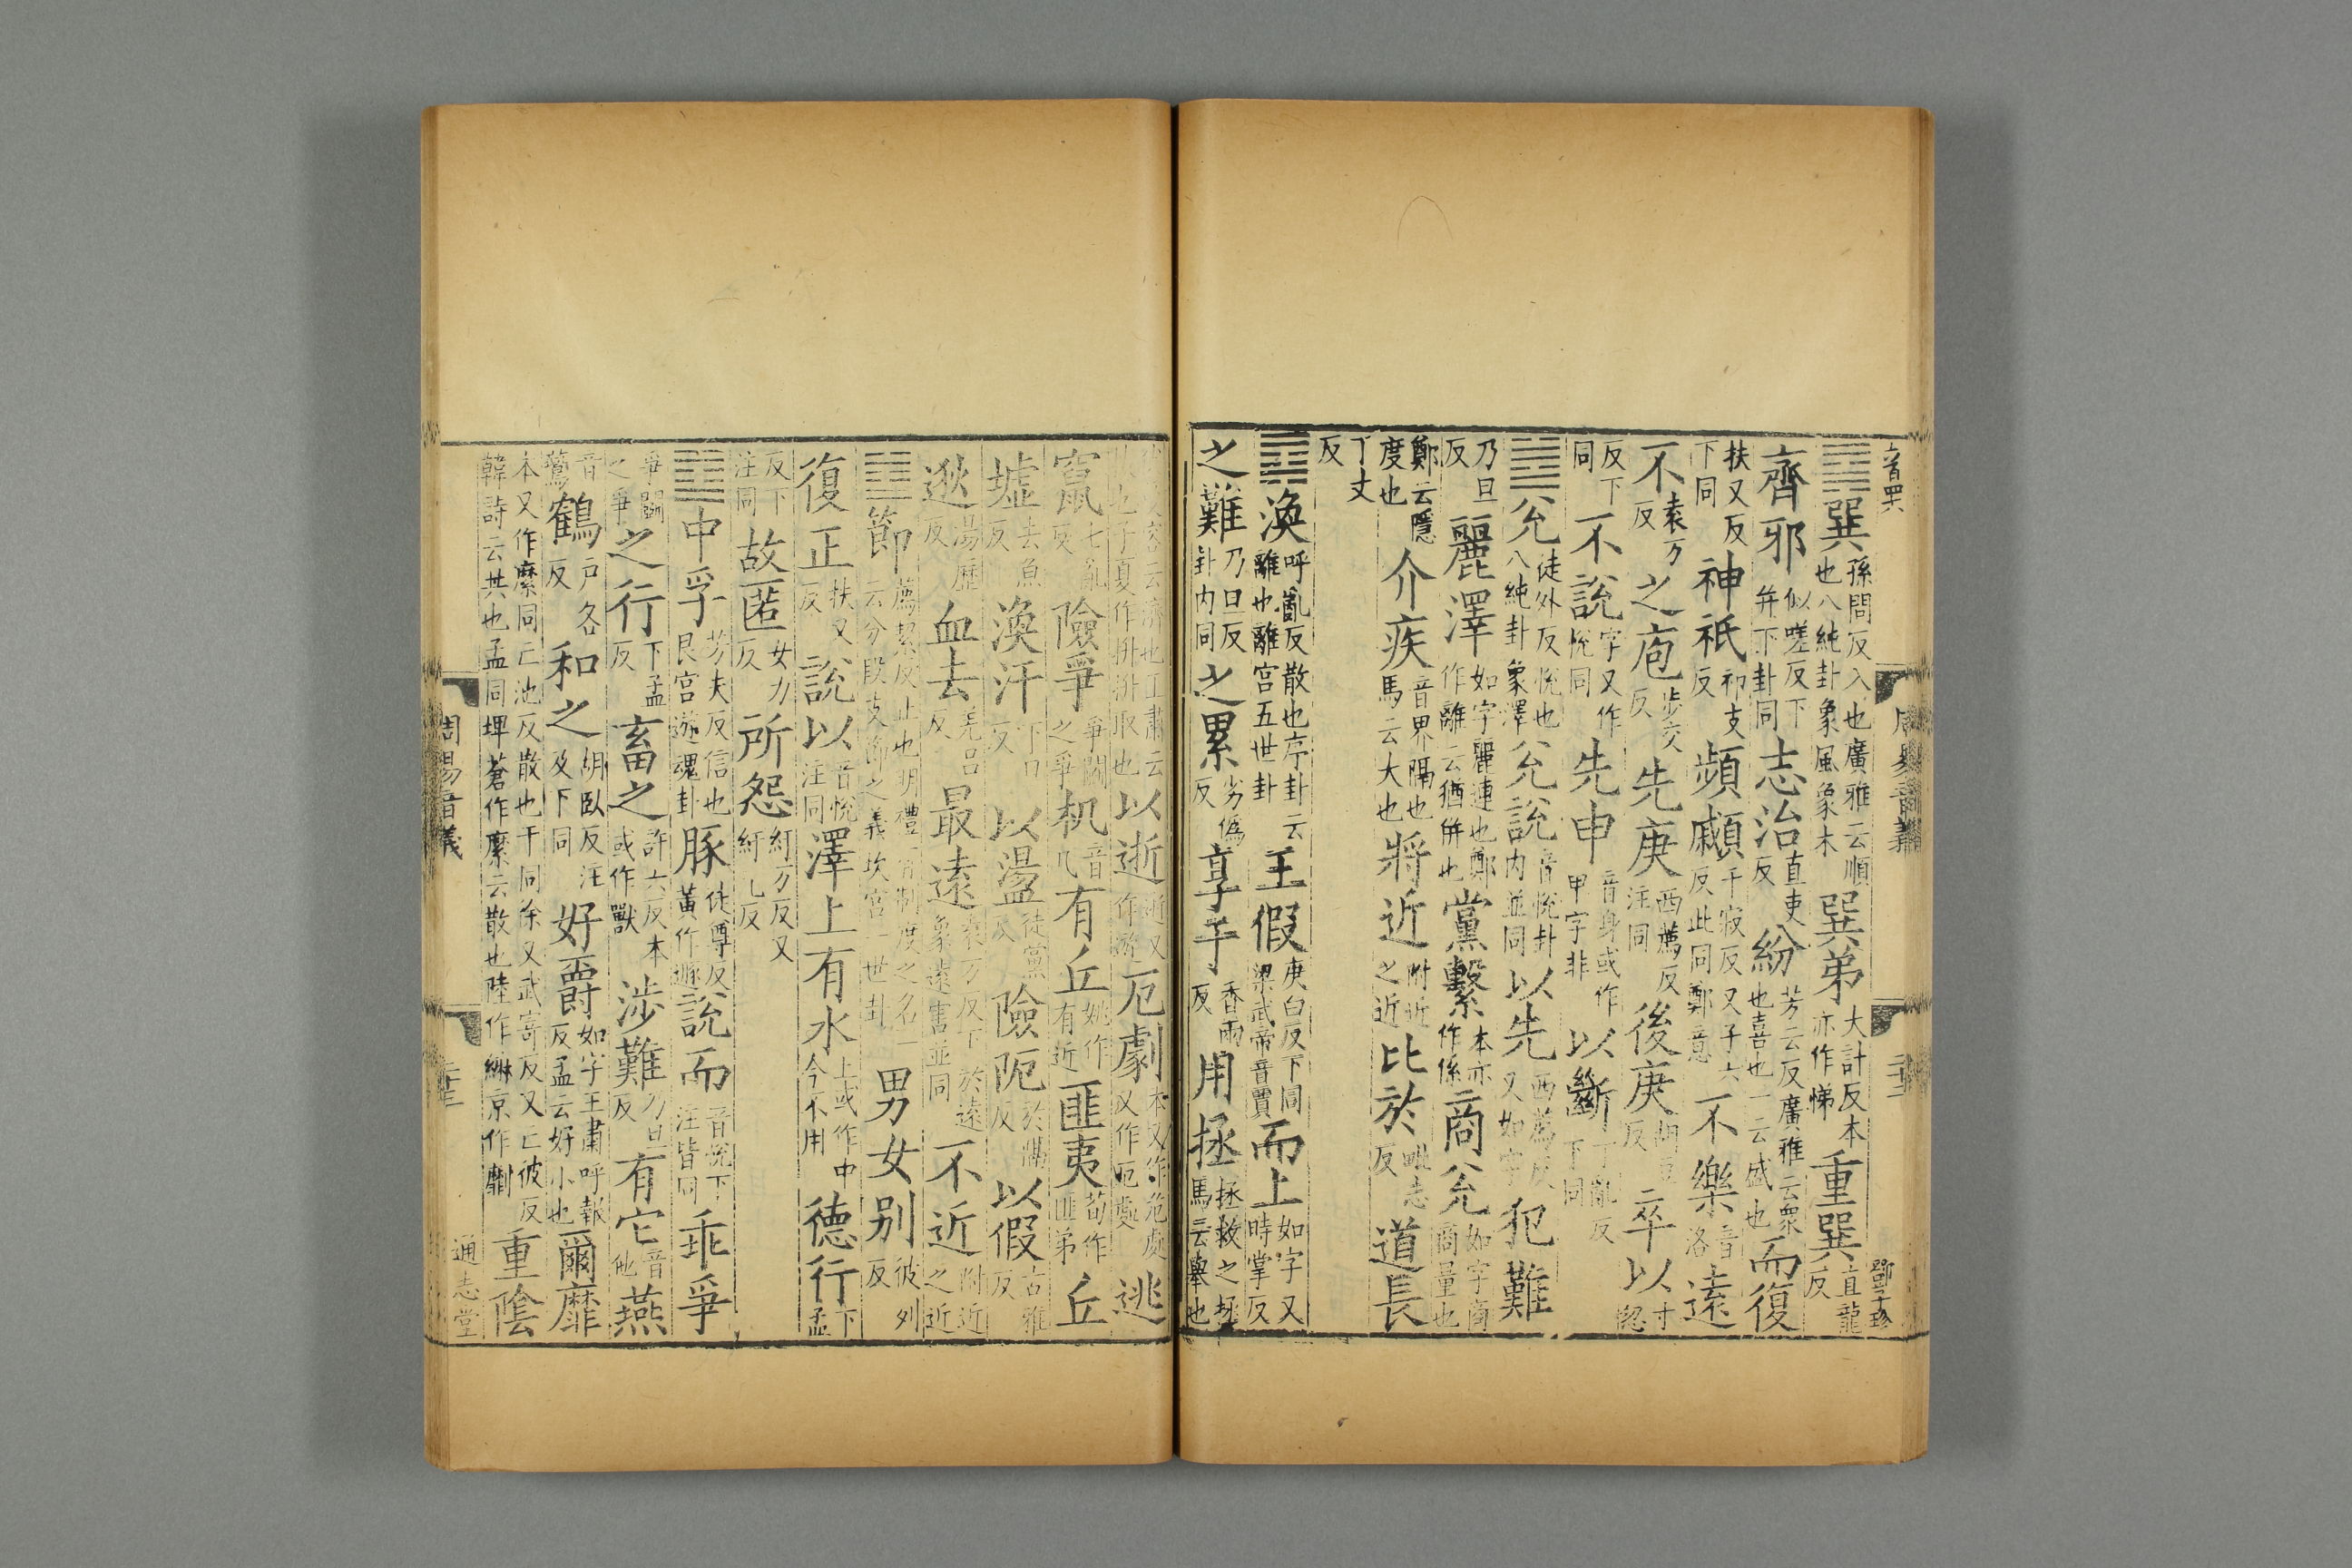 音四
䷸巽孫問反入也廣雅云順也八純卦象風象木巽弟大計反本亦作悌重巽直龍反
齊邪似嗟反下并下卦同志治直吏反紛芳云反廣雅云衆也喜也一云盛也而復
扶又反下同神祇祁支反頻顣千寂反又子六反此同鄭意不樂音洛遠
不袁万反之庖步交反先庚西薦反注同後庚胡豆反卒以寸忽
反下同不說字又作悅同先申音身或作甲字非以斷丁亂反下同
䷹兌徒外反悅也八純卦象澤兌說音悅卦内並同以先西薦反又如字犯難
乃旦反麗澤如字麗連也鄭作離云猶併也黨繫本亦作係商兌如字商商量也
鄭云隱度也介疾音界隔也馬云大也將近附近之近比於毗志反道長
丁丈反
䷺渙呼亂反散也序卦云離也離宫五世卦王假庚白反下同梁武帝音賈而上如字又時掌反
之難乃旦反卦内同之累劣偽反享于香兩反用拯拯救之拯馬云舉也
周易音義
云濟也王肅云也子夏作抍抍取也以逝逝又作遊厄劇本又作危處又作厄處逃
竄七亂反險爭爭鬭之爭机音几有丘姚作有近匪夷荀作匪弟丘
墟去魚反渙汗下旦反以盪徒黨反險阨於隔反以假古雅反
逖湯歷反血去羌呂反最遠袁万反下於遠象遠害並同不近附近之近
䷻節薦絜反止也明禮有制度之名一云分段支節之義坎宫一世卦男女别彼列反
復正扶又反說以音悅注同澤上有水上或作中今不用德行下孟
反下注同故匿女力反所怨紆万反又紆反
䷼中孚芳夫反信也艮宫遊魂卦豚徒尊反黃作遯說而音悅下注皆同乖爭
爭鬭之爭之行下孟反畜之許六反本或作獸涉難乃旦反有它音他燕
音鷰鶴户各反和之胡臥反注及下同好爵如字王肅呼報反孟云好小也爾靡
本又作縻同亡池反散也干同徐又武寄反又亡彼反韓詩云共也孟同埤蒼作縻云散也陸作䌕京作劘重陰
周易音義
通志堂